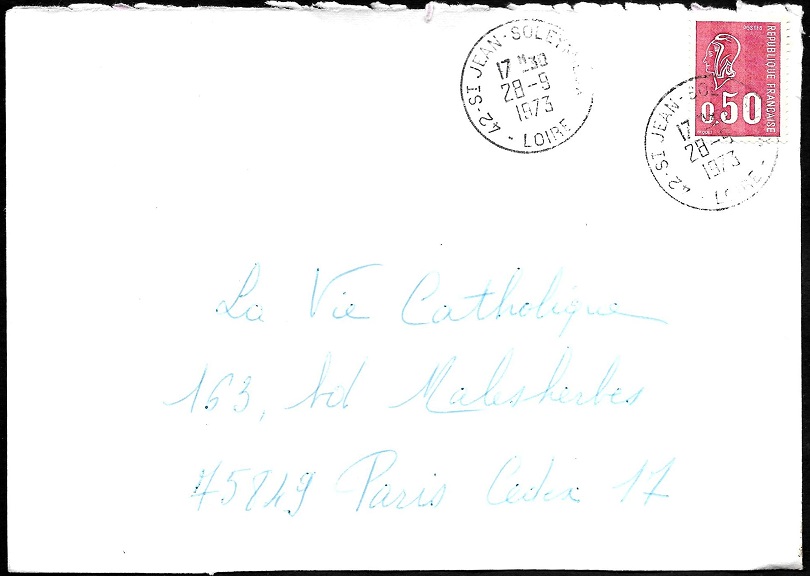 42-ST JEAN-SOLEYMIEUX
17 H30
28-9
1973
LOIRE
POSTES
REPUBLIQUE FRANÇAISE
0,50
42-ST JEAN-SO
17
28-9
1973
LOIRE
La Vie Catholique
163, bd Malesherbes
75849 Paris Cedex 17